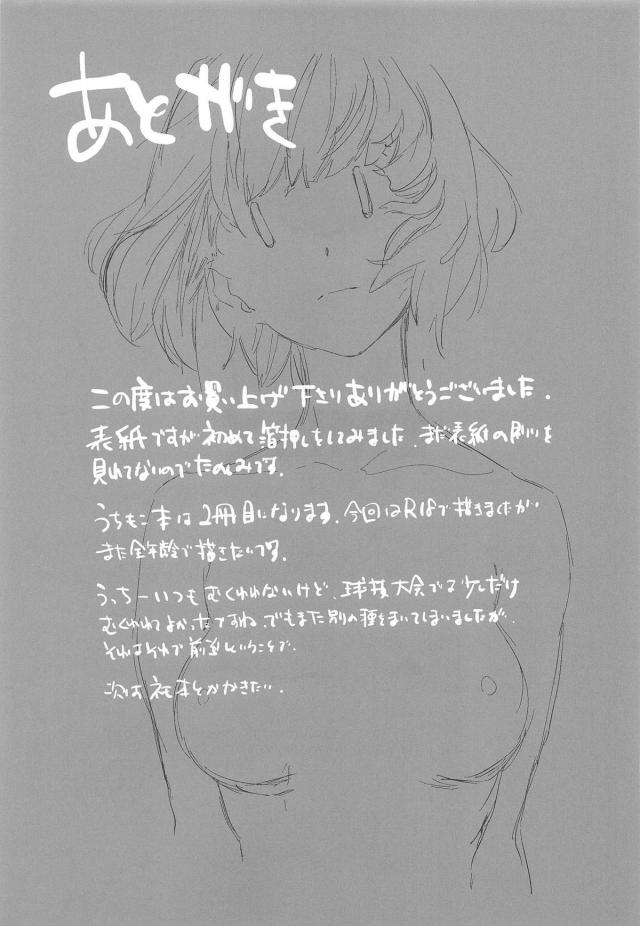 あとがき
この度はお買い上げ下さりありがとうございました.
表紙ですが初めて箔押しをしてみました. まだ表紙の刷りを
見れてないのでたのしみです.
うちもこ本は2冊目になります. 今回はR18で描きましたが
また全年齢で描きたいです.
うっちーいつもむくわれないけど. 球技大会で少しだけ
むくわれてよかったですね でもまた別の種をまいてしまいましたが.
それはそれで前進ということで.
次はネモ本とかかきたい.